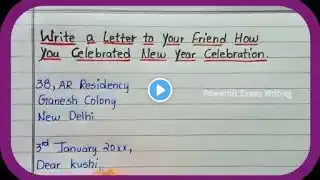 Write a Letter to Your Friend How
You Celebrated New Year Celebration.
38, AR Residency
Ganesh Colony
New Delhi
Powerlift Essay Writing
3rd January 20xx,
Dear Kushi,